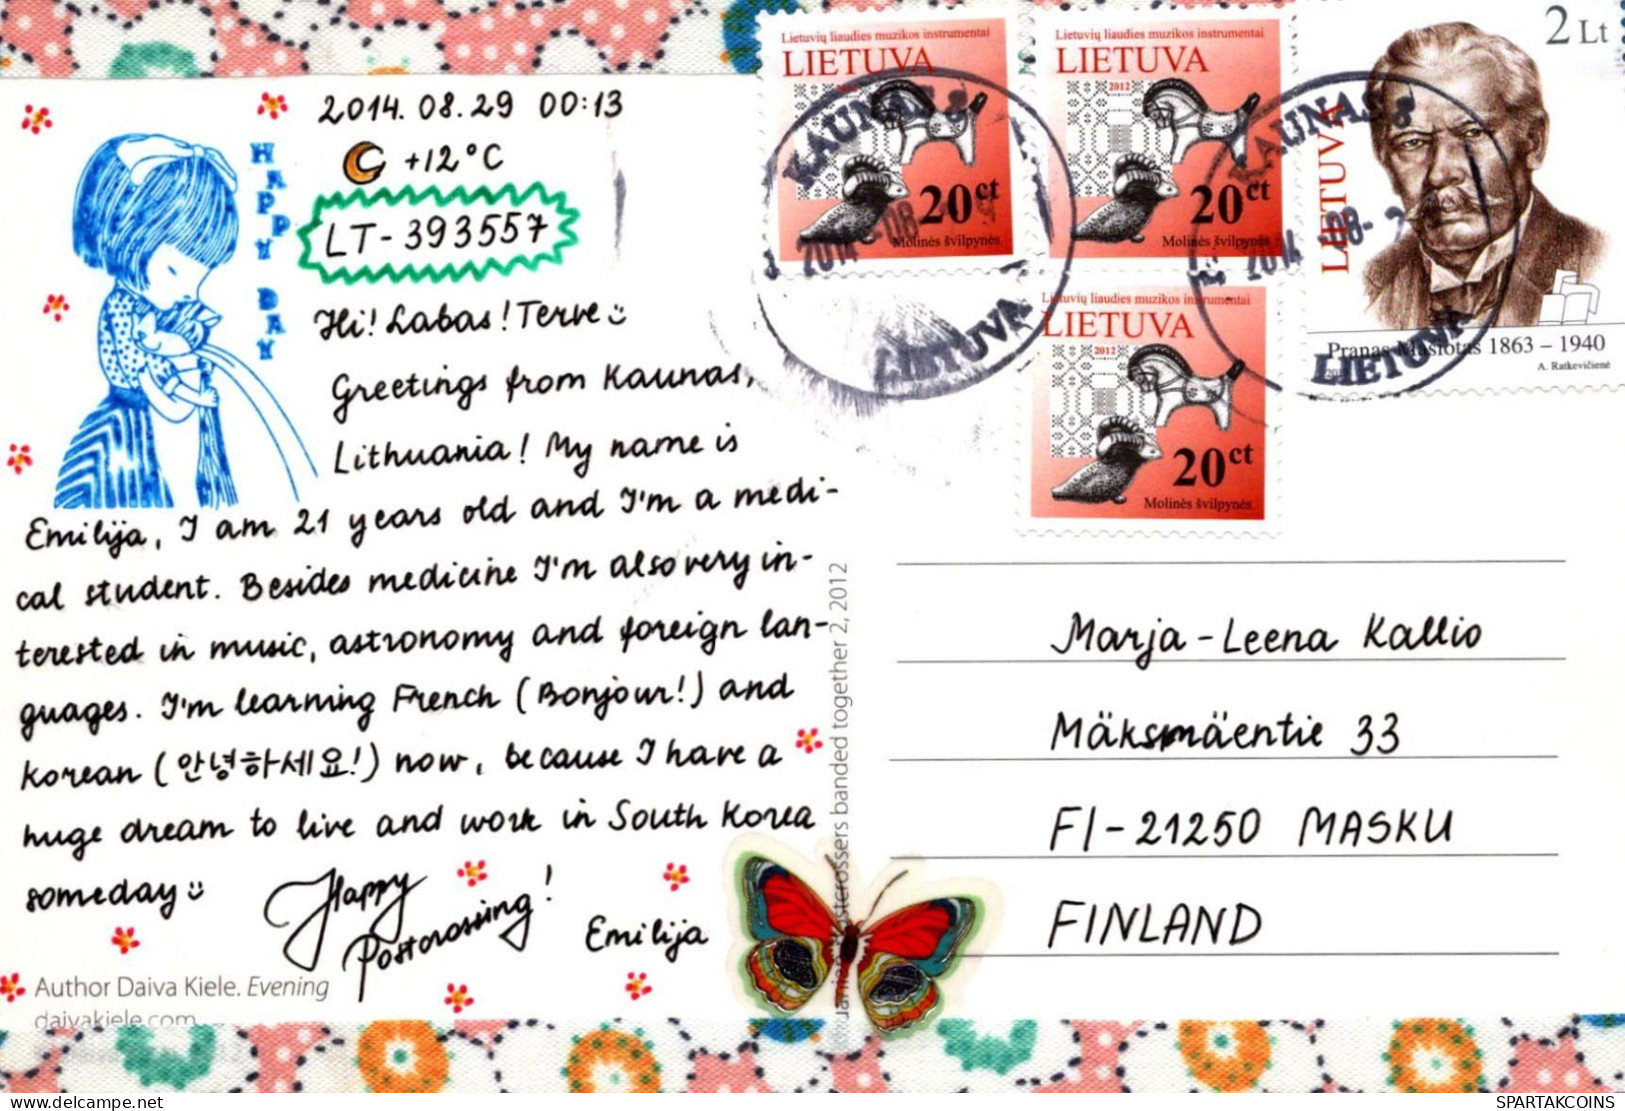 2014.08.29 00:13
+12°C
LT-393557
HAPPY DAY
Hi! Labas! Terve
Greetings from Kaunas,
Lithuania! My name is
Emilija, I am 21 years old and I'm a medi-
cal student. Besides medicine I'm also very in-
terested in music, astronomy and foreign lan-
guages. I'm learning French (Bonjour!) and
Korean (안녕하세요!) now, because I have a
huge dream to live and work in South Korea
someday
Happy
Postcrossing!
Emilija
Author Daiva Kiele. Evening
daivakiele.com
banded together 2, 2012
Lietuvių liaudies muzikos instrumentai
LIETUVA
20ct
Molinės švilpynės
KAUNAS 8
2014-08-
LIETUVA
Lietuvių liaudies muzikos instrumentai
LIETUVA
2012
20ct
Molinės švilpynės
Lietuvių liaudies muzikos instrumentai
LIETUVA
2012
20ct
Molinės švilpynės
2 Lt
LIETUVA
Pranas Mašiotas 1863 – 1940
A. Ratkevičienė
KAUNAS 8
2014-08-2
LIETUVA
Marja-Leena Kallio
Mäksmäentie 33
FI-21250 MASKU
FINLAND
SPARTAKCOINS
delcampe.net